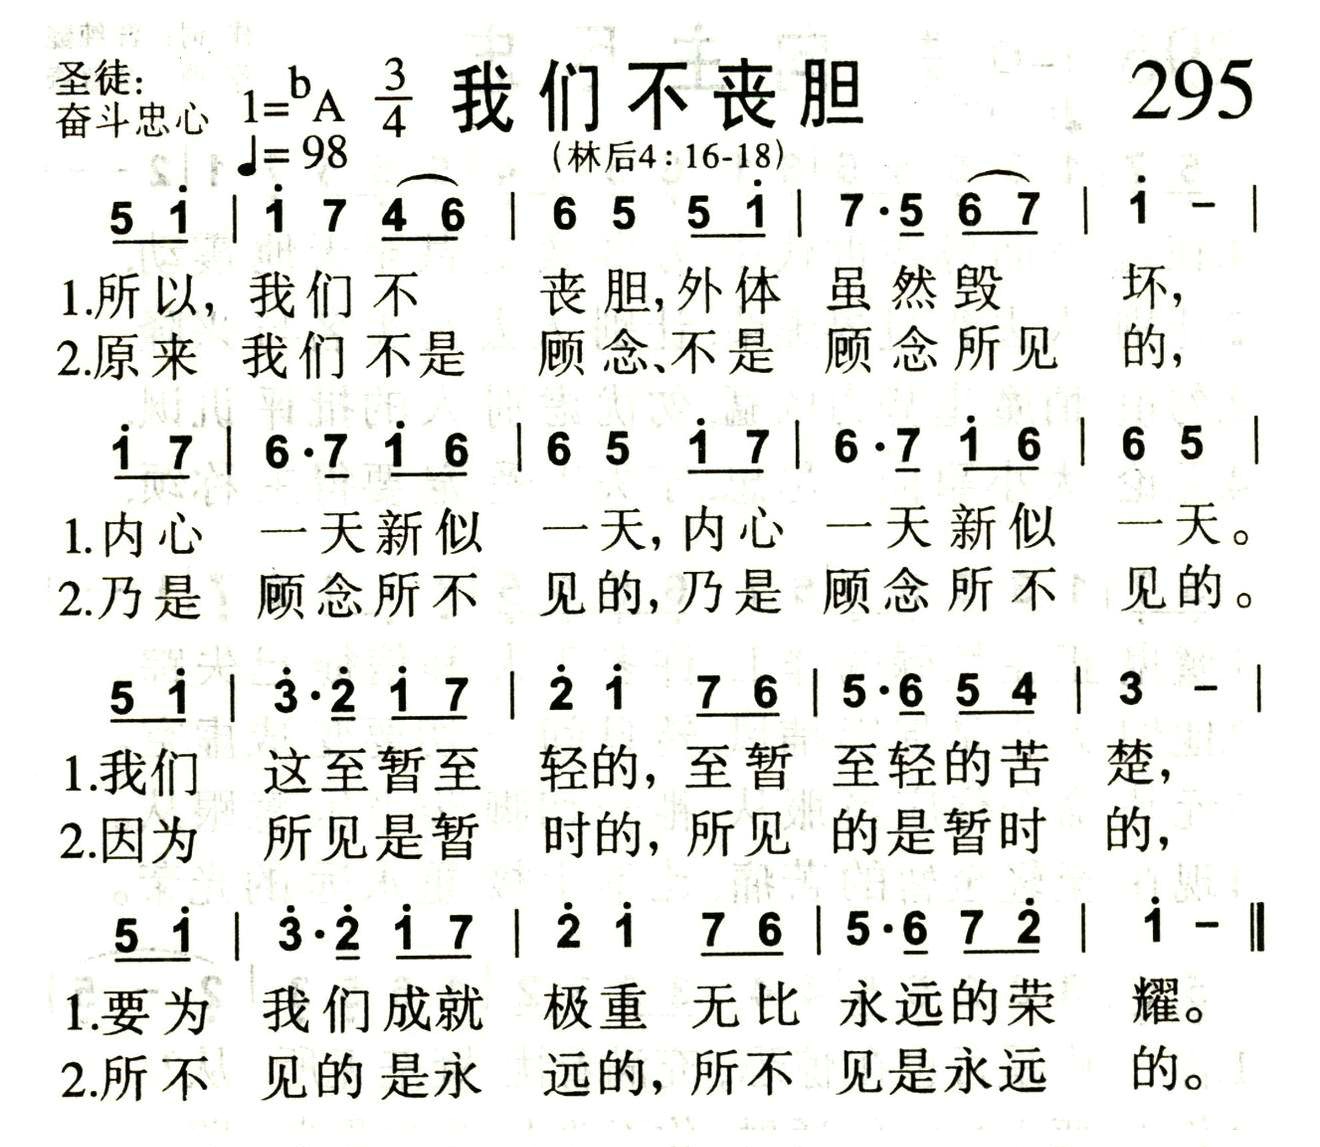 圣徒:
奋斗忠心
1=ᵇA 3/4 我们不丧胆 295
♩=98
(林后4:16-18)
5 1̇ | 1̇ 7 4 6 | 6 5 5 1̇ | 7·5 6 7 | 1̇ - |
1.所以,我们不 丧胆,外体 虽然毁 坏,
2.原来 我们不是 顾念、不是 顾念所见 的,
1̇ 7 | 6·7 1̇ 6 | 6 5 1̇ 7 | 6·7 1̇ 6 | 6 5 |
1.内心 一天新似 一天,内心 一天新似 一天。
2.乃是 顾念所不 见的,乃是 顾念所不 见的。
5 1̇ | 3̇·2̇ 1̇ 7 | 2̇ 1̇ 7 6 | 5·6 5 4 | 3 - |
1.我们 这至暂至 轻的,至暂 至轻的苦 楚,
2.因为 所见是暂 时的,所见 的是暂时 的,
5 1̇ | 3̇·2̇ 1̇ 7 | 2̇ 1̇ 7 6 | 5·6 7 2̇ | 1̇ - ‖
1.要为 我们成就 极重 无比 永远的荣 耀。
2.所不 见的是永 远的,所不 见是永远 的。